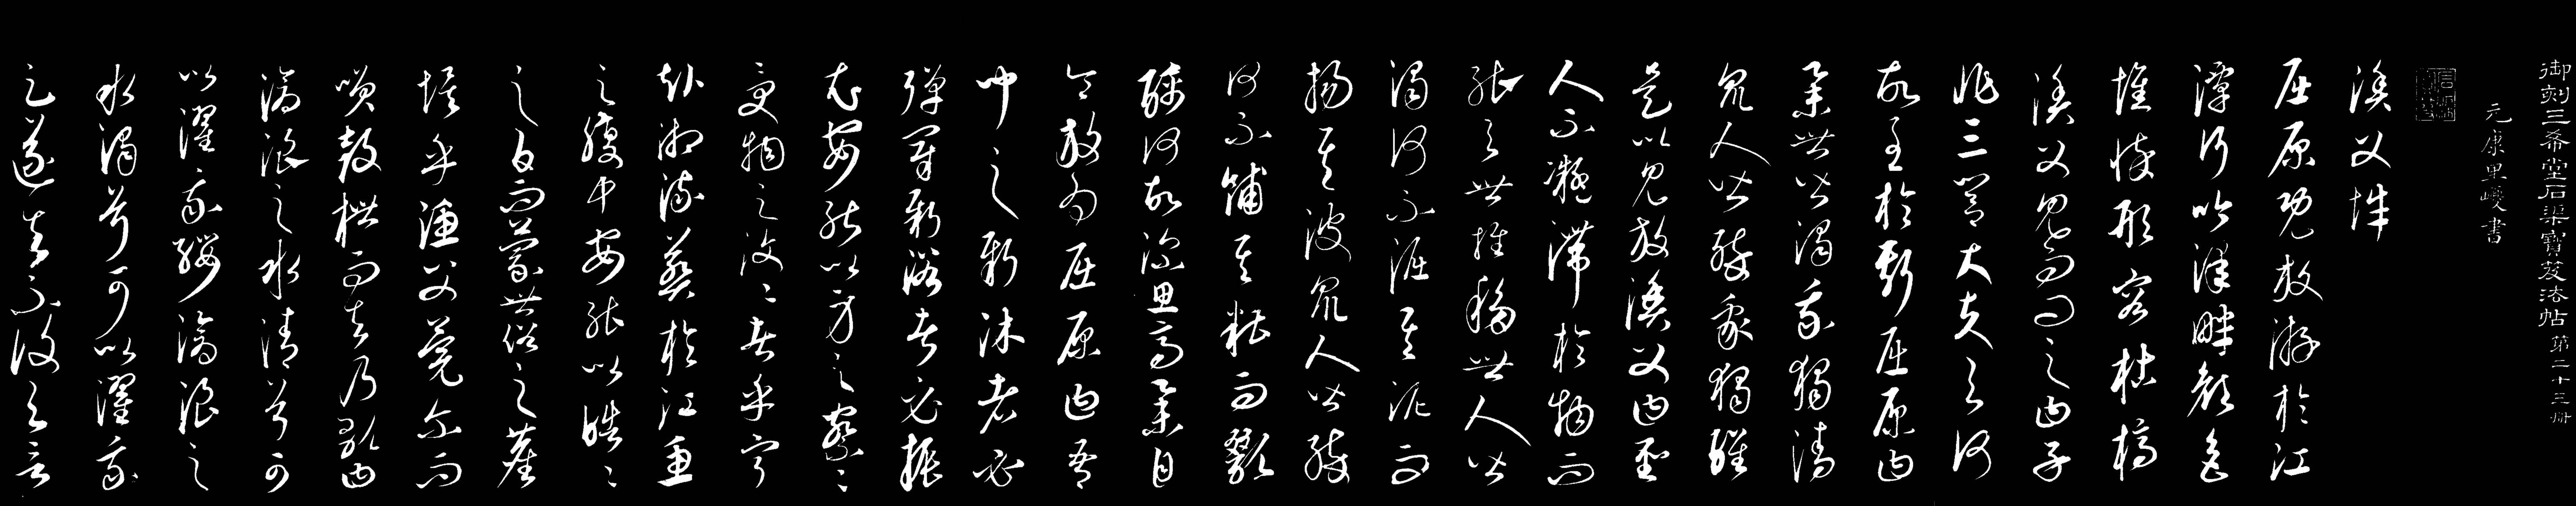 御刻三希堂石渠寶笈法帖 第二十三冊
元康里巎書
漁父辭
屈原既放游於江
潭行吟澤畔顏色
憔悴形容枯槁
漁父見而問之曰子
非三閭大夫與何
故至於斯屈原曰
舉世皆濁我獨清
眾人皆醉我獨醒
是以見放漁父曰聖
人不凝滯於物而
能與世推移世人皆
濁何不淈其泥而
揚其波眾人皆醉
何不餔其糟而歠
醨何故深思高舉自
令放為屈原曰吾
聞之新沐者必
彈冠新浴者必振
衣安能以身之察〻
受物之汶〻者乎寧
赴湘流葬於江魚
之腹中安能以皓〻
之白而蒙世俗之塵
埃乎漁父莞爾而
笑鼓枻而去乃歌曰
滄浪之水清兮可
以濯我纓滄浪之
水濁兮可以濯我
足遂去不復與言